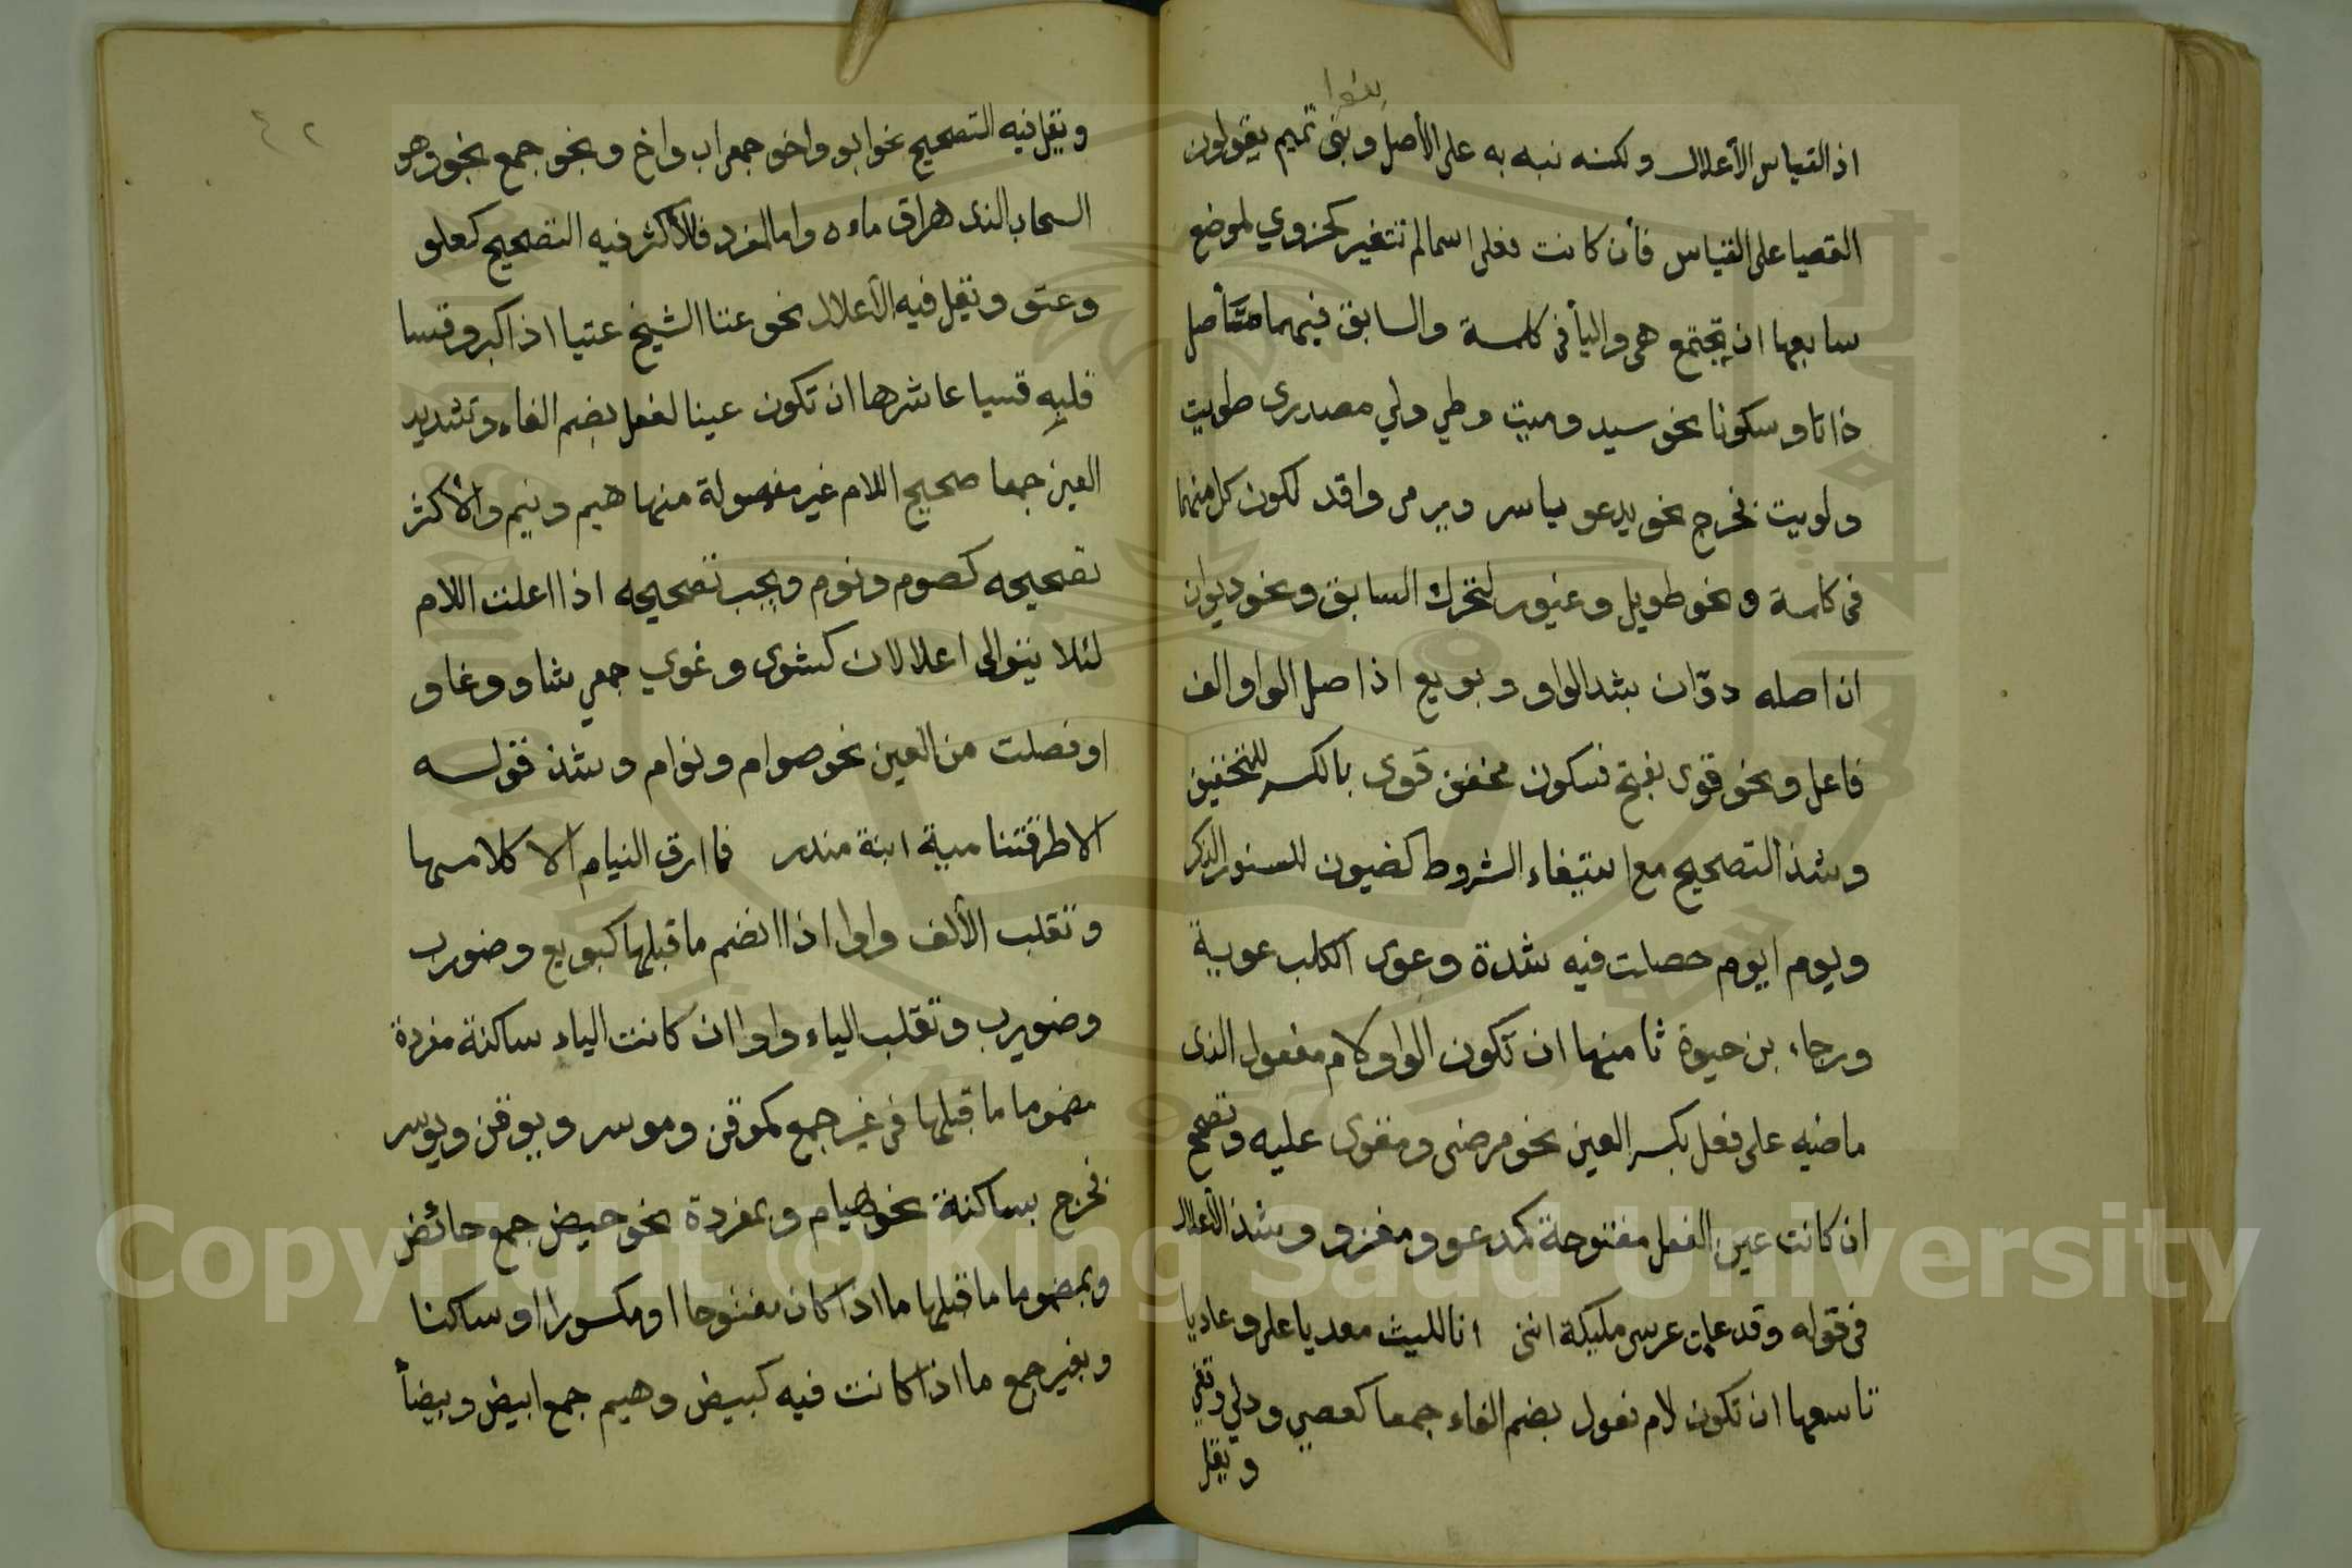 بنوا
اذ القياس الأعلال ولكنه نبه به على الأصل وبنى تميم يقولون
القصيا على القياس فأن كانت فعلى اسما لم تتغير كحزوي لموضع
سابعها ان تجتمع هى واليأ فى كلمة والسابق فيهما متأصل
ذاتا وسكونا نحو سيد وميت وطي ولي مصدرى طويت
ولويت فخرج نحو يدعو ياسر ويرمى واقد لكون كل منهما
فى كلمة ونحو طويل وغيور لتحرك السابق ونحو ديوان
ان اصله دوّان بشد الواو وبويع اذ اصل الواو الف
فاعل ونحو قوى بفتح فسكون مخفف قوى بالكسر للتخفيف
وشذ التصحيح مع استيفاء الشروط كضيون للسنور الذكر
ويوم ايوم حصلت فيه شدة وعوى الكلب عوية
ورجاء بن حيوة ثامنها ان تكون الواو كلام مفعول الذى
ماضيه على فعل بكسر العين نحو مرضى ومقوى عليه وتصحح
ان كانت عين الفعل مفتوحة كمدعو ومغزو وشذ الأعلال
فى قوله وقد علمت عرسى مليكة اننى انا الليث معديا على وعاديا
تاسعها ان تكون لام فعول بضم الفاء جمعا كعصي ودلي وقفي
ويقل
٤٢
ويقل فيه التصحيح نحو ابو واخو جمع اب واخ ونحو جمع نجو وهو
السحاب الذى هراق ماءه واما المفرد فالأكثر فيه التصحيح كعلو
وعتو ويقل فيه الأعلال نحو عتا الشيخ عتيا اذا كبر وقسا
قلبه قسيا عاشرها ان تكون عينا لفعل بضم الفاء وتشديد
العين جمعا صحيح اللام غير مفصولة منها هيم ونيم والأكثر
تصحيحه كصوم ونوم ويجب تصحيحه اذا اعلت اللام
لئلا يتوالى اعلالان كشوى وغوي جمعي شاو وغاو
او فصلت من العين نحو صوام ونوام وشذ قوله
الا طرقتنا مية ابنة منذر فما ارق النيام الا كلامها
وتقلب الألف واوا اذا انضم ما قبلها كبويع وضورب
وضويرب وتقلب الياء واوا ان كانت الياء ساكنة مفردة
مضموما ما قبلها فى غير جمع كموقن وموسر ويوقن ويوسر
فخرج بساكنة نحو هيام وبمفردة نحو حيض جمع حائض
وبمضموما ما قبلها ما اذا كان مفتوحا او مكسورا او ساكنا
وبغير جمع ما اذا كانت فيه كبيض وهيم جمع ابيض وبيضأ
Copyright © King Saud University